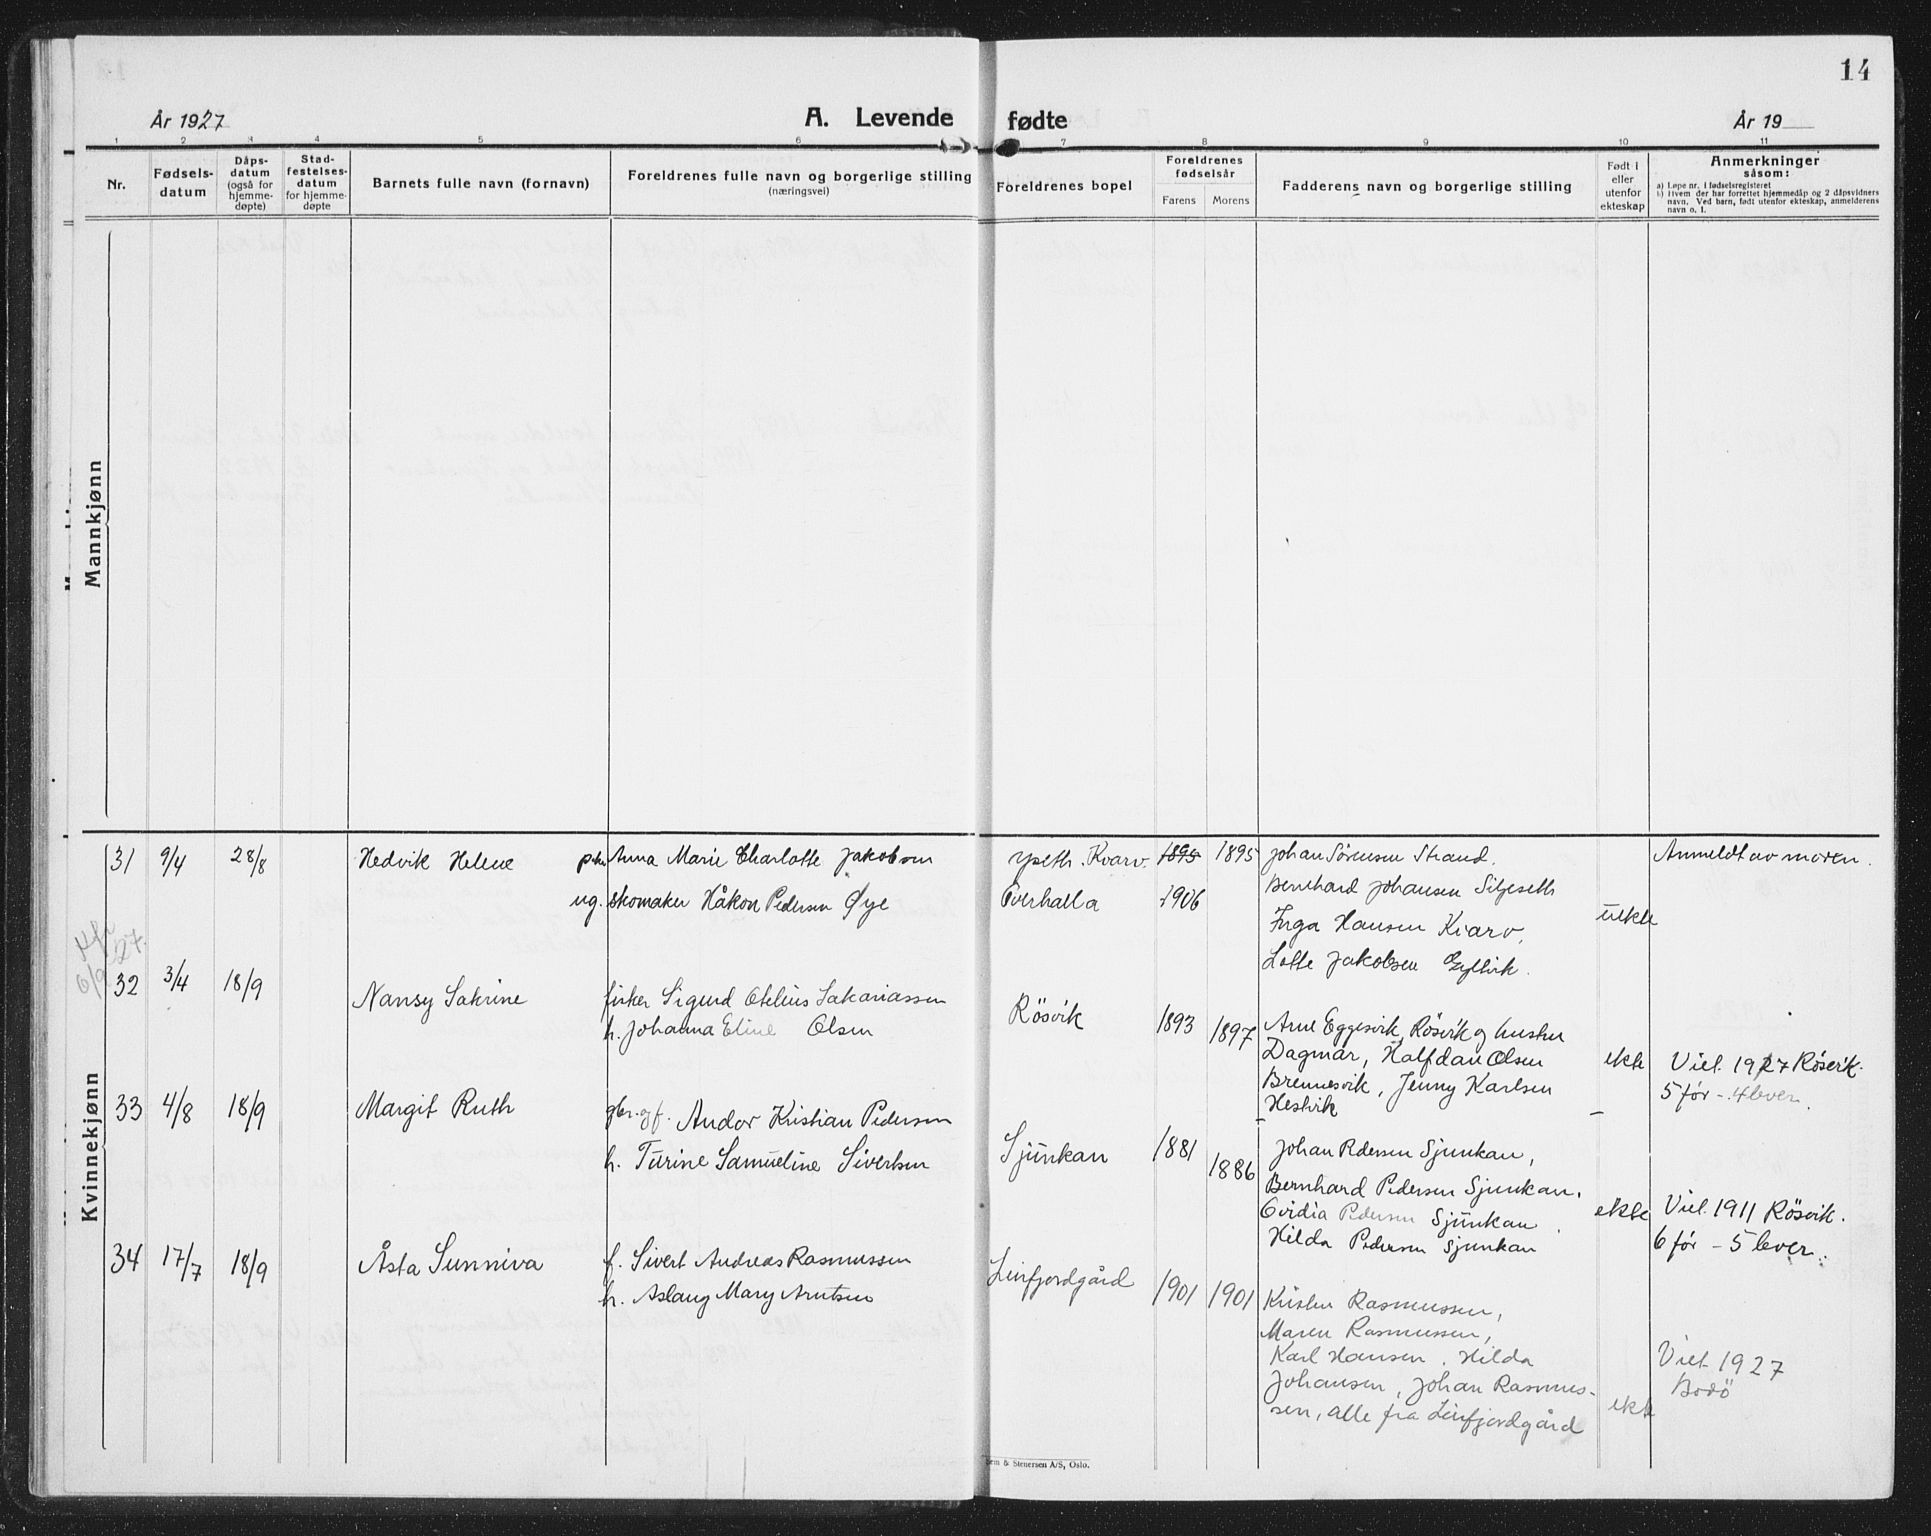 14
År 1927
A. Levende fødte
År 19
1 2 3 4 5 6 7 8 9 10 11
Nr.
Fødsels-
datum
Dåps-
datum
(også for
hjemme-
døpte)
Stad-
festelses-
datum
for hjemme-
døpte
Barnets fulle navn (fornavn)
Foreldrenes fulle navn og borgerlige stilling
(næringsvei)
Foreldrenes bopel
Foreldrenes
fødselsår
Farens Morens
Fadderens navn og borgerlige stilling
Født i
eller
utenfor
ekteskap
Anmerkninger
såsom:
a) Løpe nr. i fødselsregisteret
b) Hvem der har forrettet hjemmedåp og 2 dåpsvidners
navn. Ved barn, født utenfor ekteskap, anmelderens
navn o. l.
Mannkjønn
Kvinnekjønn
31 9/4 28/8 Hedvik Helene
Anna Marie Charlotte Jakobsen
ug. skomaker Håkon Pedersen Øye
Kvarv.
Overhalla
1895 1895
1906
Johan Sørensen Strand.
Bernhard Johansen Siljeseth
Inga Hansen Kvarv,
Lotte Jakobsen
uekte
Anmeldt av moren.
6/9 27.
32 3/4 18/9 Nansy Sakrine
fisker Sigurd Otelius Sakariassen
h. Johanna Eline Olsen
Rösvik
1893 1897
Arne Eggesvik, Rösvik og hustru
Dagmar, Halfdan Olsen
Brennesvik, Jenny Karlsen
Hestvik
ekte
Viet 1927 Rösvik.
5 før - 4 lever.
33 4/8 18/9 Margit Ruth
gbr. og f. Andor Kristian Pedersen
h. Turine Samueline Sivertsen
Sjunkan
1881 1886
Johan Pedersen Sjunkan,
Bernhard Pedersen Sjunkan,
Ovidia Pedersen Sjunkan
Hilda Pedersen Sjunkan
ekte
Viet 1911 Røsvik.
6 før - 5 lever.
34 17/7 18/9 Åsta Sunniva
f. Sivert Andreas Rasmussen
h. Aslaug Mary Arntsen
Leirfjordgård
1901 1901
Kristen Rasmussen,
Maren Rasmussen,
Karl Hansen, Hilda
Johansen, Johan Rasmus-
sen, alle fra Leirfjordgård
ekte
Viet 1927
Bodö
& Stenersen A/S, Oslo.